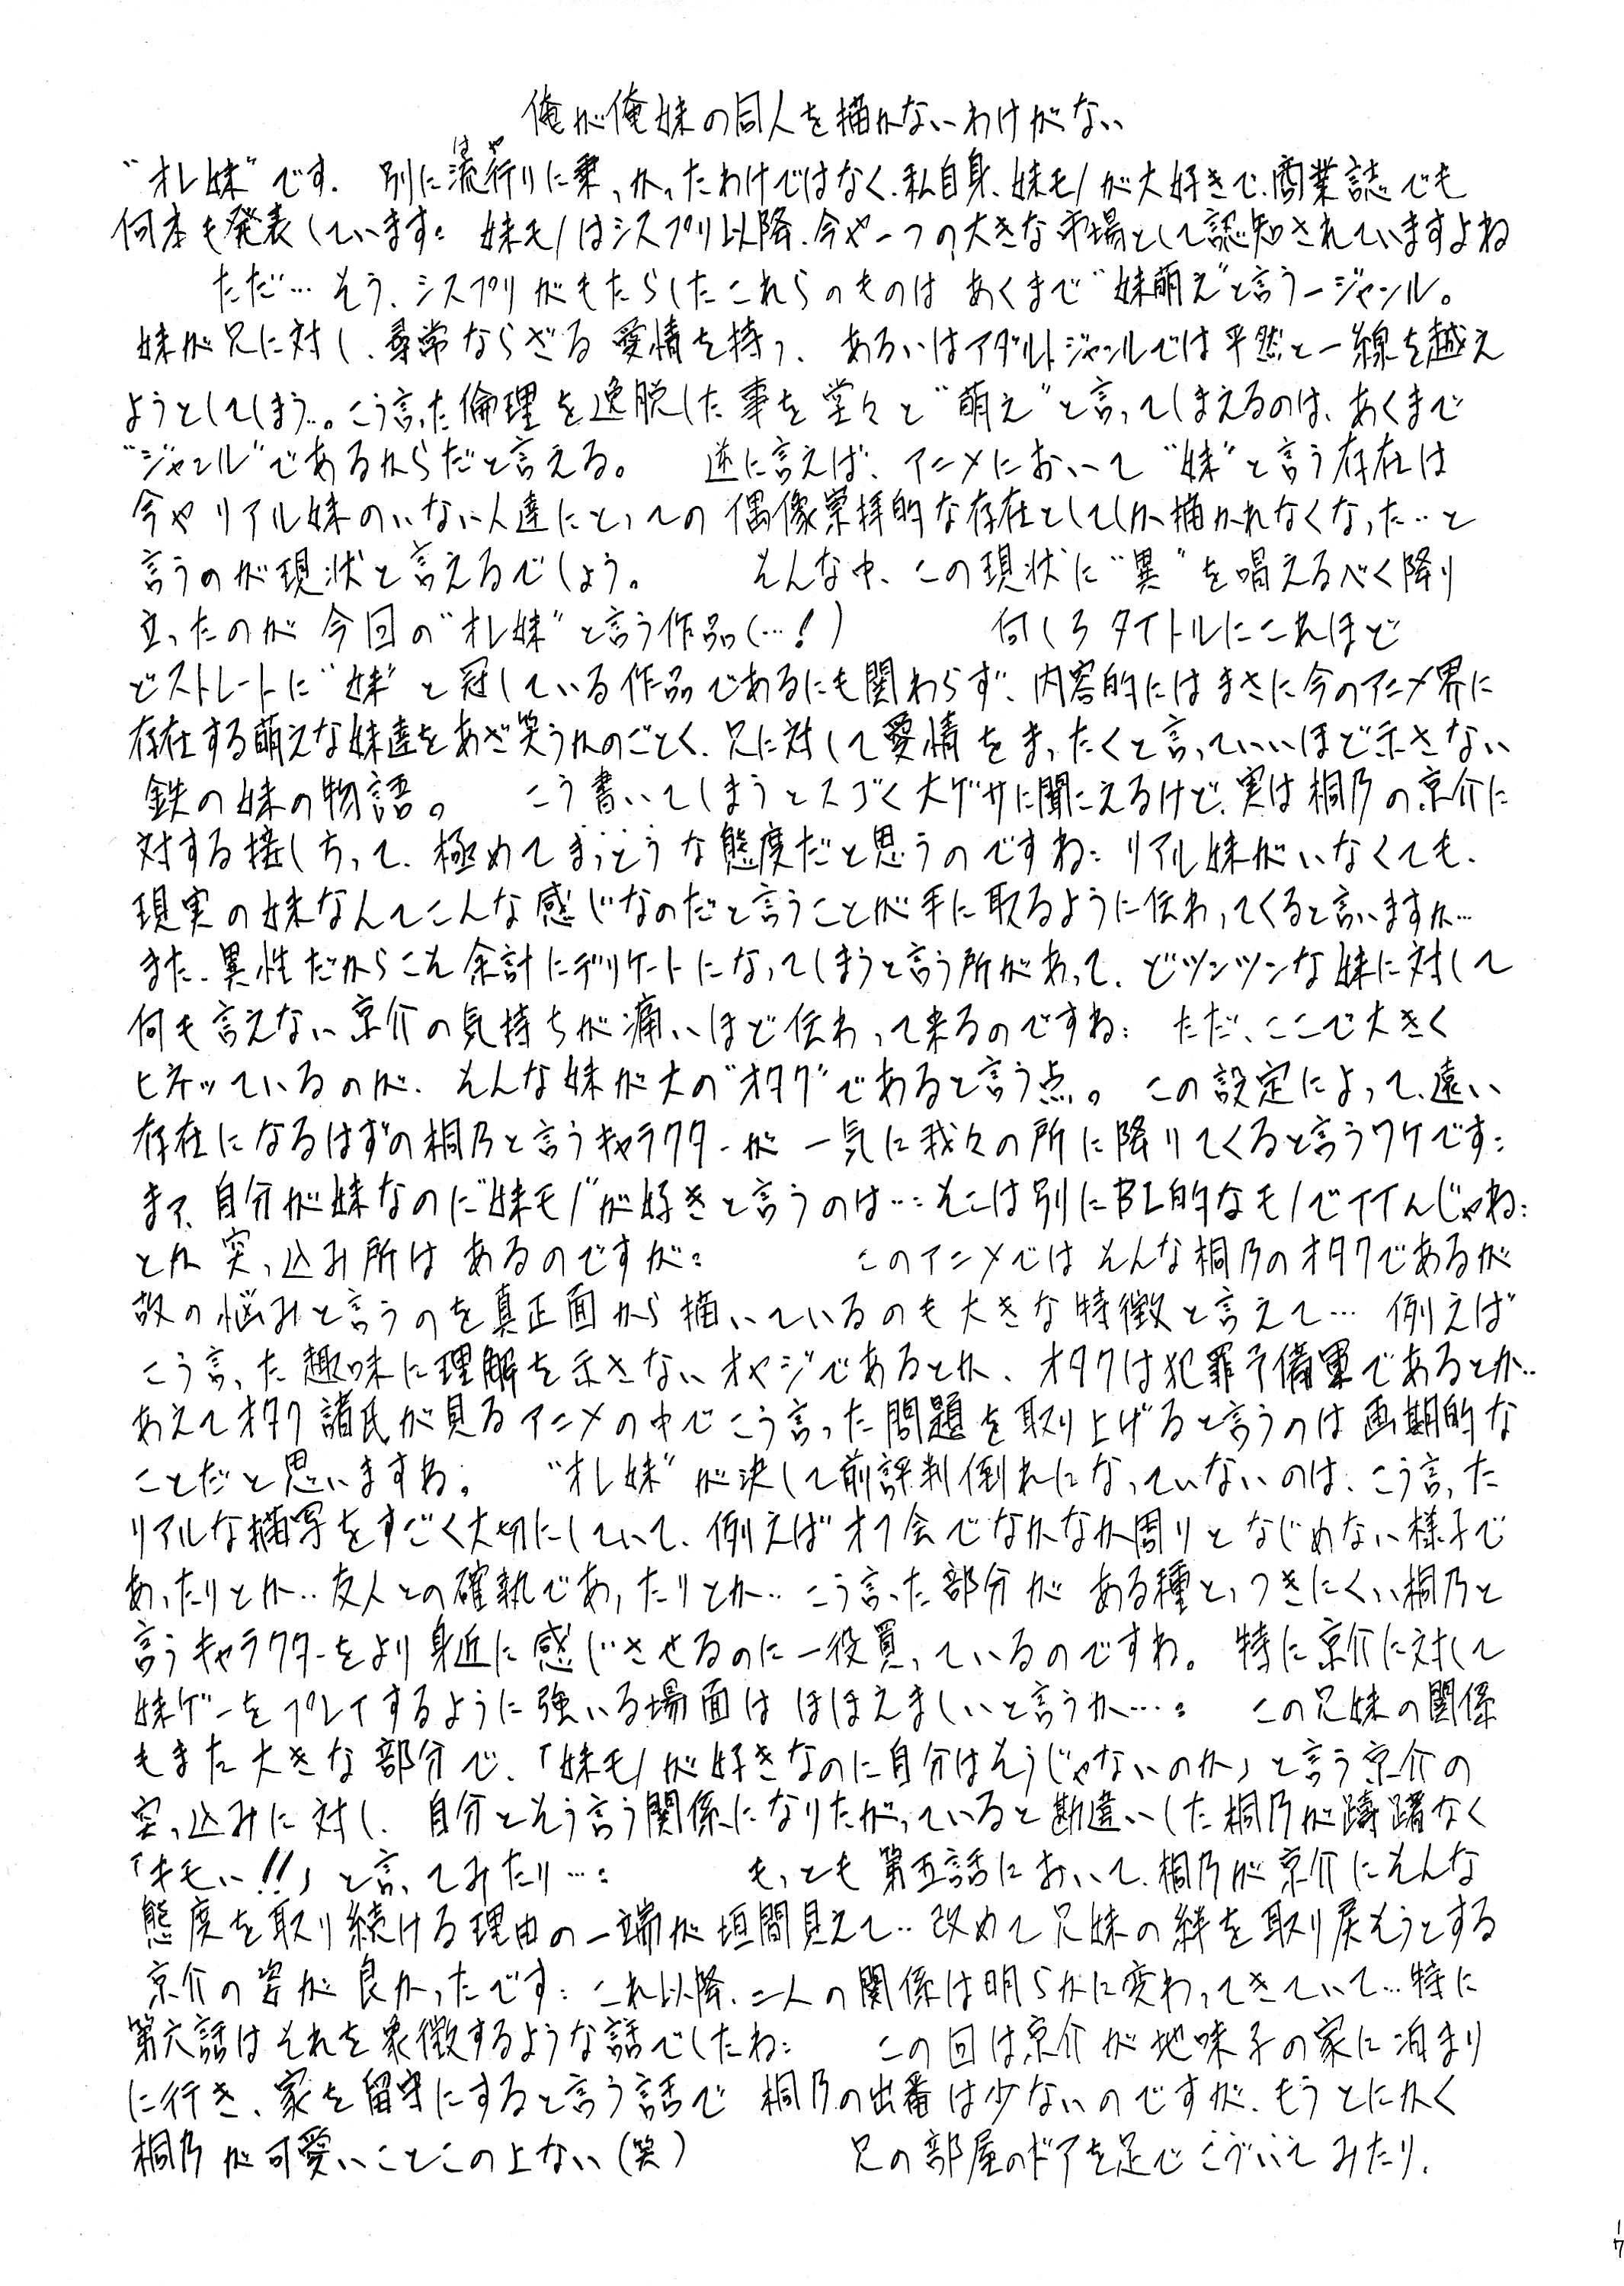 俺が俺妹の同人を描かないわけがない
"オレ妹"です. 別に流行りに乗っかったわけではなく、私自身、妹モノが大好きで、商業誌でも
はや
何本も発表しています: 妹モノはシスプリ以降、今や一つの大きな市場として認知されていますよね
ただ… そう、シスプリがもたらしたこれらのものは あくまで"妹萌え"と言う一ジャンル。
妹が兄に対し、尋常ならざる愛情を持つ、 あるいはアダルトジャンルでは平然と一線を越え
ようとしてしまう…。こう言った倫理を逸脱した事を堂々と"萌え"と言ってしまえるのは、あくまで
"ジャンル"であるからだと言える。 逆に言えば、アニメにおいて"妹"と言う存在は
今やリアル妹のいない人達にとっての偶像崇拝的な存在としてしか描かれなくなった…と
言うのが現状と言えるでしょう。 そんな中、この現状に"異"を唱えるべく降り
立ったのが今回の"オレ妹"と言う作品(…!) 何しろタイトルにこれほど
どストレートに"妹"と冠している作品であるにも関わらず、内容的にはまさに今のアニメ界に
存在する萌えな妹達をあざ笑うかのごとく、兄に対して愛情をまったくと言っていいほど示さない
鉄の妹の物語。 こう書いてしまうとスゴく大ゲサに聞こえるけど、実は桐乃の京介に
対する接し方って、極めてまっとうな態度だと思うのですね: リアル妹がいなくても、
現実の妹なんてこんな感じなのだと言うことが手に取るように伝わってくると言いますか…
また、異性だからこそ余計にデリケートになってしまうと言う所があって、どツンツンな妹に対して
何も言えない京介の気持ちが痛いほど伝わって来るのですね: ただ、ここで大きく
ヒネッているのが、そんな妹が大の"オタク"であると言う点。 この設定によって、遠い
存在になるはずの桐乃と言うキャラクターが一気に我々の所に降りてくると言うワケです:
まァ、自分が妹なのに"妹モノ"が好きと言うのは…: そこは別にBL的なモノでイイんじゃね:
とか突っ込み所はあるのですが: このアニメではそんな桐乃のオタクであるが
故の悩みと言うのを真正面から描いているのも大きな特徴と言えて… 例えば
こう言った趣味に理解を示さないオヤジであるとか、オタクは犯罪予備軍であるとか…
あえてオタク諸氏が見るアニメの中でこう言った問題を取り上げると言うのは画期的な
ことだと思いますね。 "オレ妹"が決して前評判倒れになっていないのは、こう言った
リアルな描写をすごく大切にしていて、例えばオフ会でなかなか周りとなじめない様子で
あったりとか…友人との確執であったりとか… こう言った部分がある種とっつきにくい桐乃と
言うキャラクターをより身近に感じさせるのに一役買っているのですね。 特に京介に対して
妹ゲーをプレイするように強いる場面はほほえましいと言うか…: この兄妹の関係
もまた大きな部分で、「妹モノが好きなのに自分はそうじゃないのか」と言う京介の
突っ込みに対し、自分とそう言う関係になりたがっていると勘違いした桐乃が躊躇なく
「キモい!!」と言ってみたり…: もっとも第五話において、桐乃が京介にそんな
態度を取り続ける理由の一端が垣間見えて… 改めて兄妹の絆を取り戻そうとする
京介の姿が良かったです: これ以降、二人の関係は明らかに変わってきていて…特に
第六話はそれを象徴するような話でしたね: この回は京介が地味子の家に泊まり
に行き、家を留守にすると言う話で 桐乃の出番は少ないのですが、もうとにかく
桐乃が可愛いことこの上ない(笑) 兄の部屋のドアを足でこづいてみたり、
17